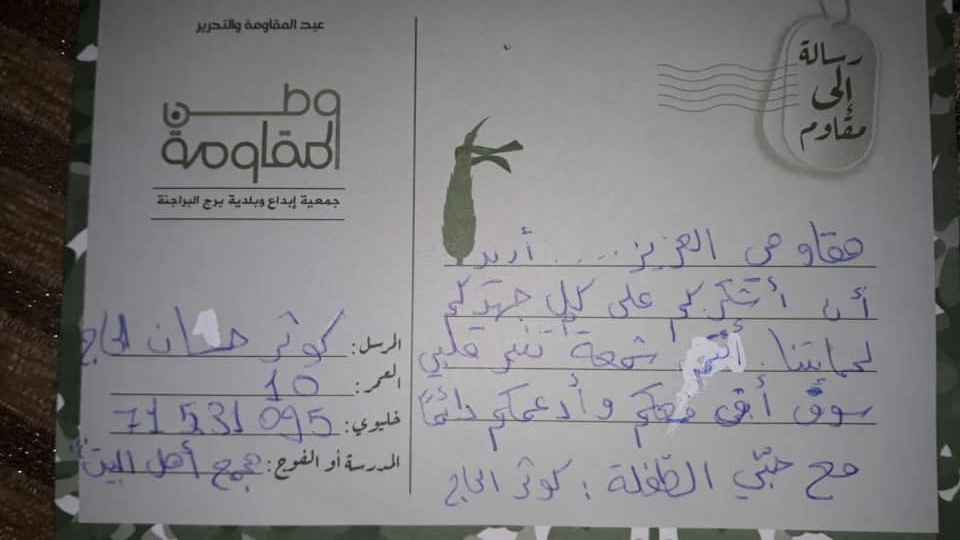 رسالة
إلى
مقاوم
مقاومي العزيز.... أريد
أن أشكركم على كل جهدكم
لحمايتنا. أنتم شمعة تنير قلبي
سوف أبقى معكم وأدعمكم دائمًا
مع حبّي الطّفلة : كوثر الحاج
عيد المقاومة والتحرير
وطن
المقاومة
جمعية إبداع وبلدية برج البراجنة
المرسل: كوثر حسان الحاج
العمر: 10
خليوي: 71 531 095
المدرسة أو الفوج: مجمع أهل البيت